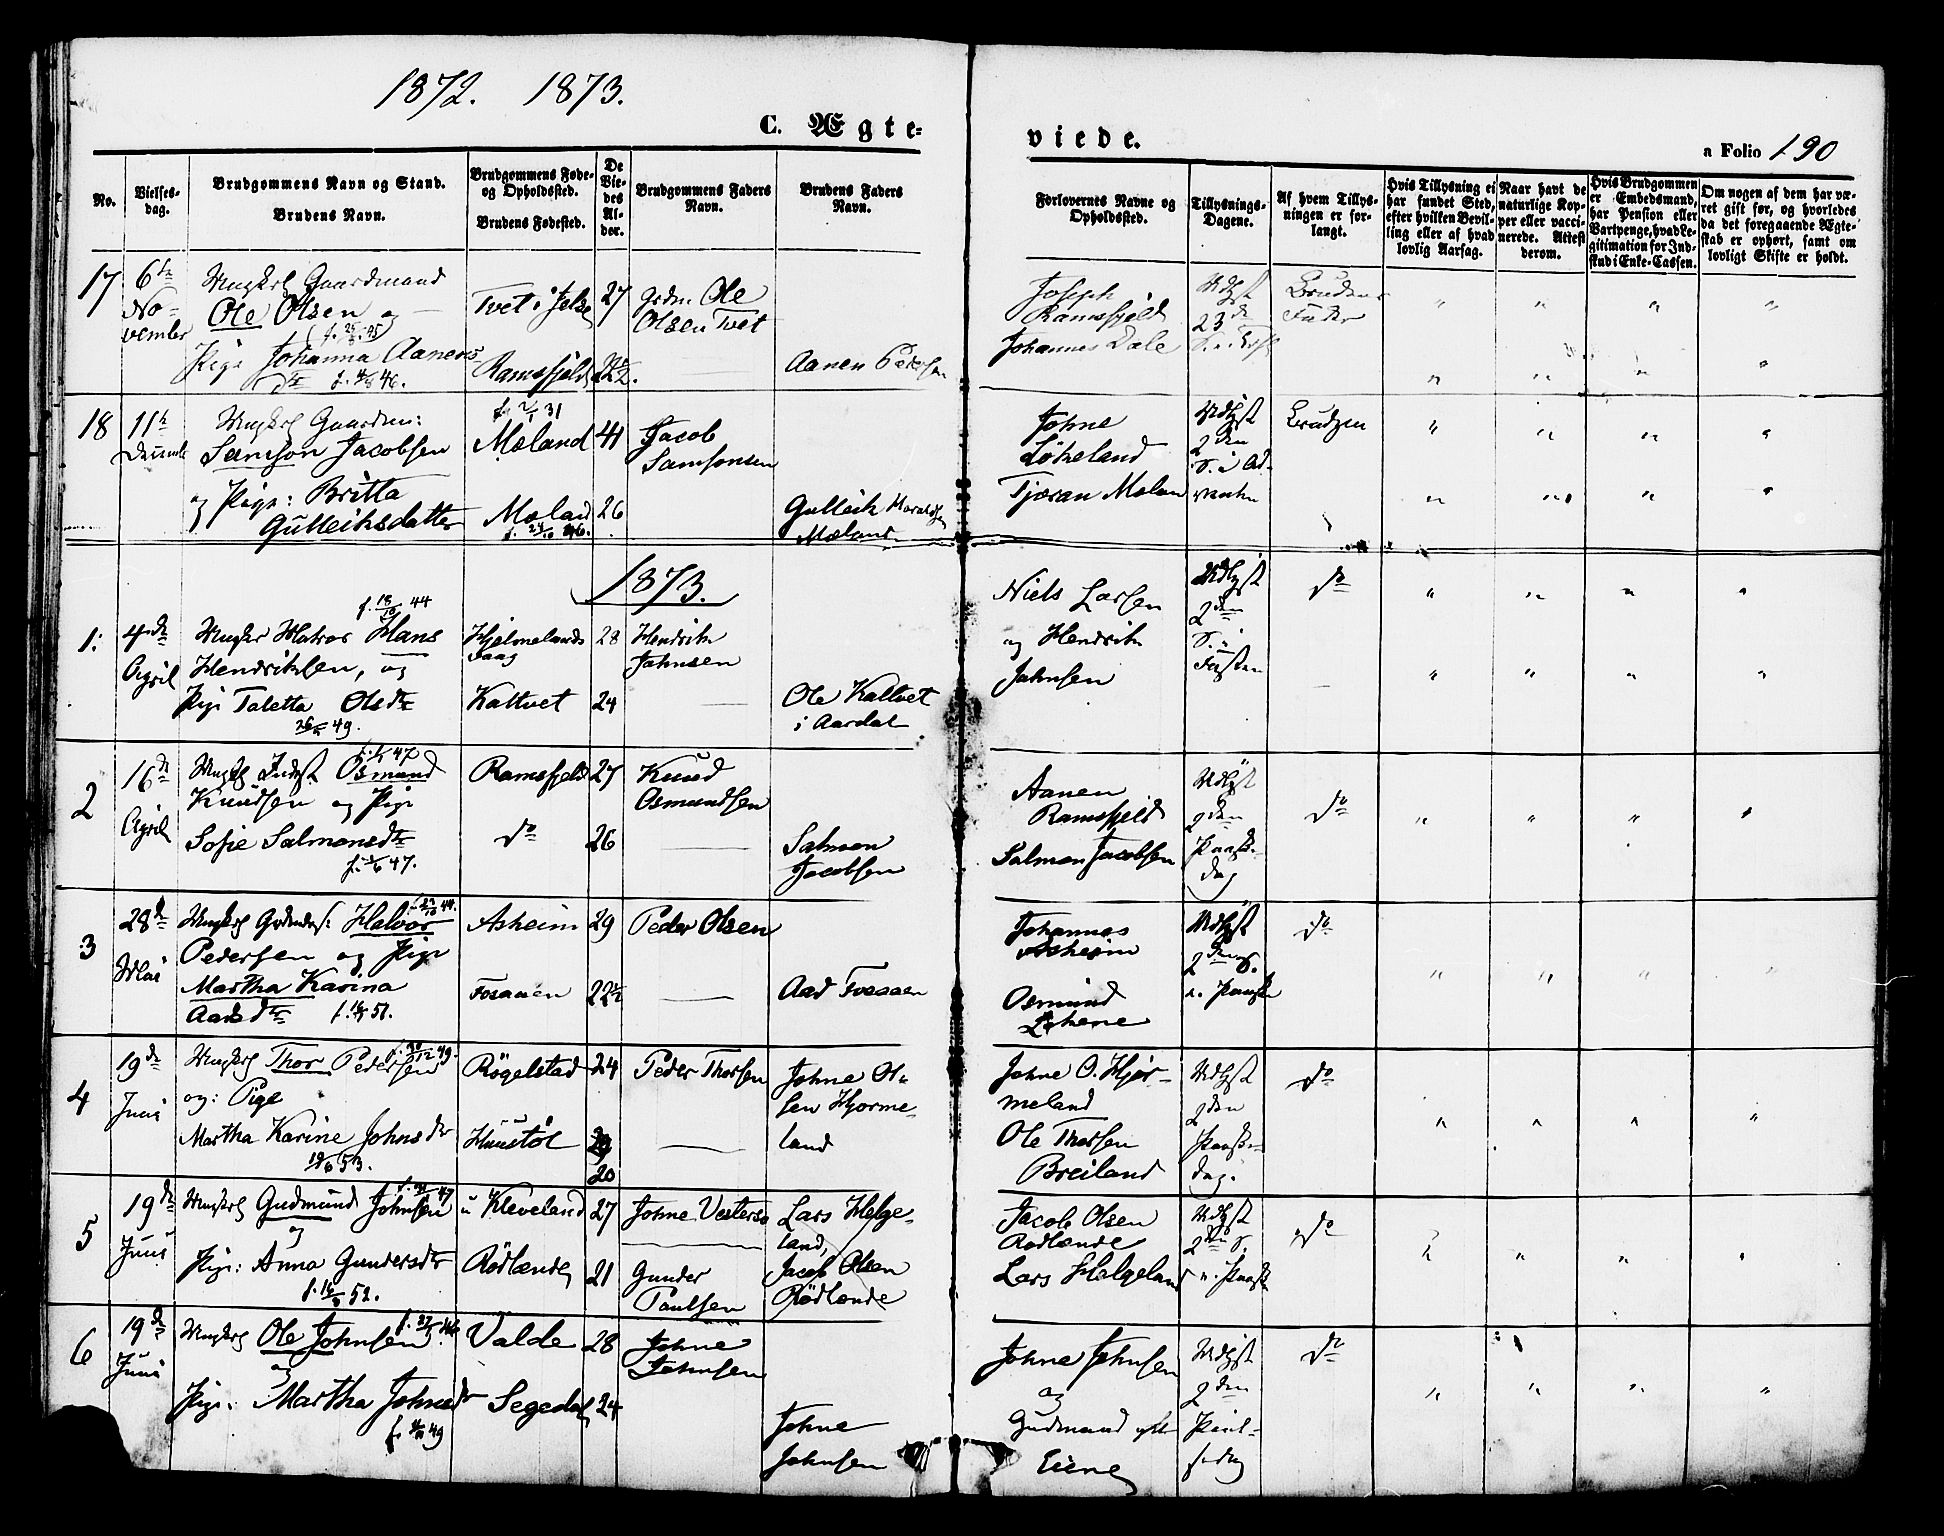 1872. 1873.
C. Ægte-
viede.
a Folio 190
No.
Vielses-
dag.
Brudgommens Navn og Stand.
Brudens Navn.
Brudgommens Føde-
og Opholdssted.
Brudens Fødested.
De
Vie-
des
Al-
der.
Brudgommens Faders
Navn.
Brudens Faders
Navn.
Forlovernes Navne og
Opholdssted.
Tillysnings-
Dagene.
Af hvem Tillys-
ningen er for-
langt.
Hvis Tillysning ei
har fundet Sted,
efter hvilken Bevil-
ling eller af hvad
lovlig Aarsag.
Naar havt de
naturlige Kop-
per eller vacci-
nerede. Attest
derom.
Hvis Brudgommen
er Embedsmand,
har Pension eller
Vartpenge, hvad Le-
gitimation for Ind-
skud i Enke-Cassen.
Om nogen af dem har væ-
ret gift før, og hvorledes
da det foregaaende Ægte-
skab er ophørt, samt om
lovligt Skifte er holdt.
17
6te
No-
vember
Ungkrl Gaardmand
Ole Olsen og
Pige Johanna Aanens
Tvet i Jelse
Ramsfjeld
27
Ole
Olsen Tvet
Aanen Pedersen
Joseph
Ramsfjeld
Johannes Dale
Udlyst
23de
Brudens
Fader
18
11te
Ungkrl Gaardm:
Samson Jacobsen
og Pige: Britta
Gulleiksdatter
Mæland
Mæland
41
26
Jacob
Samsonsen
Gulleik
Mæland
Johne
Tjæran Mæland
Udlyst
2den
S. i Ad-
venten
Brudgen
1873.
1:
4de
April
Hans
Hendriksen, og
Pige Taletta Olsdtr
Hjelmelands
Vaag
Kaltvet
28
24
Hendrik
Johnsen
Ole Kaltvet
i Aardal
Niels Larsen
og Hendrik
Johnsen
Udlyst
2den
S. i
Fasten
do
2
16de
April
Osmund
Knudsen og Pige
Sofie Salmonsdtr
Ramsfjeld
do
27
26
Knud
Osmundsen
Salmon
Jacobsen
Aanen
Ramsfjeld
Salmon Jacobsen
Udlyst
2den
Paaske-
dag
do
3
28de
Mai
Halvor
Pedersen og Pige
Martha Karina
Aadsdtr
Asheim
Fosaaen
29
22½
Peder Olsen
Aad Fossaaen
Johannes
Asheim
Osmund
Udlyst
2den S.
e. Paaske
do
4
19de
Juni
Ungkrl Thor Pedersen
og: Pige
Martha Karine Johnsdtr
Røgelstad
Huustøl
24
20
Peder Thorsen
Johne Ol-
sen Hjorme-
land
Johne O. Hjør-
meland
Ole Thorsen
Breiland
Udlyst
2den
Paaske-
dag.
do
5
19de
Juni
Ungkrl Gudmund Johnsen
og
Pige: Anna Gundersdtr
Kleveland
Rødlende
27
21
Johne
Gunder
Paulsen
Lars Helge-
land,
Jacob Olsen
Rødlende
Jacob Olsen
Rødlende
Lars Helgeland
Udlyst
2den S.
e. Paaske
do
6
19de
Juni
Ungkrl Ole Johnsen
og
Pige: Martha Johnsdtr
Valde
Segedal
28
24
Johne
Johnsen
Johne
Johnsen
Johne Johnsen
og
Gudmund
Eiene
Udlyst
2den
Pint-
sedag
do